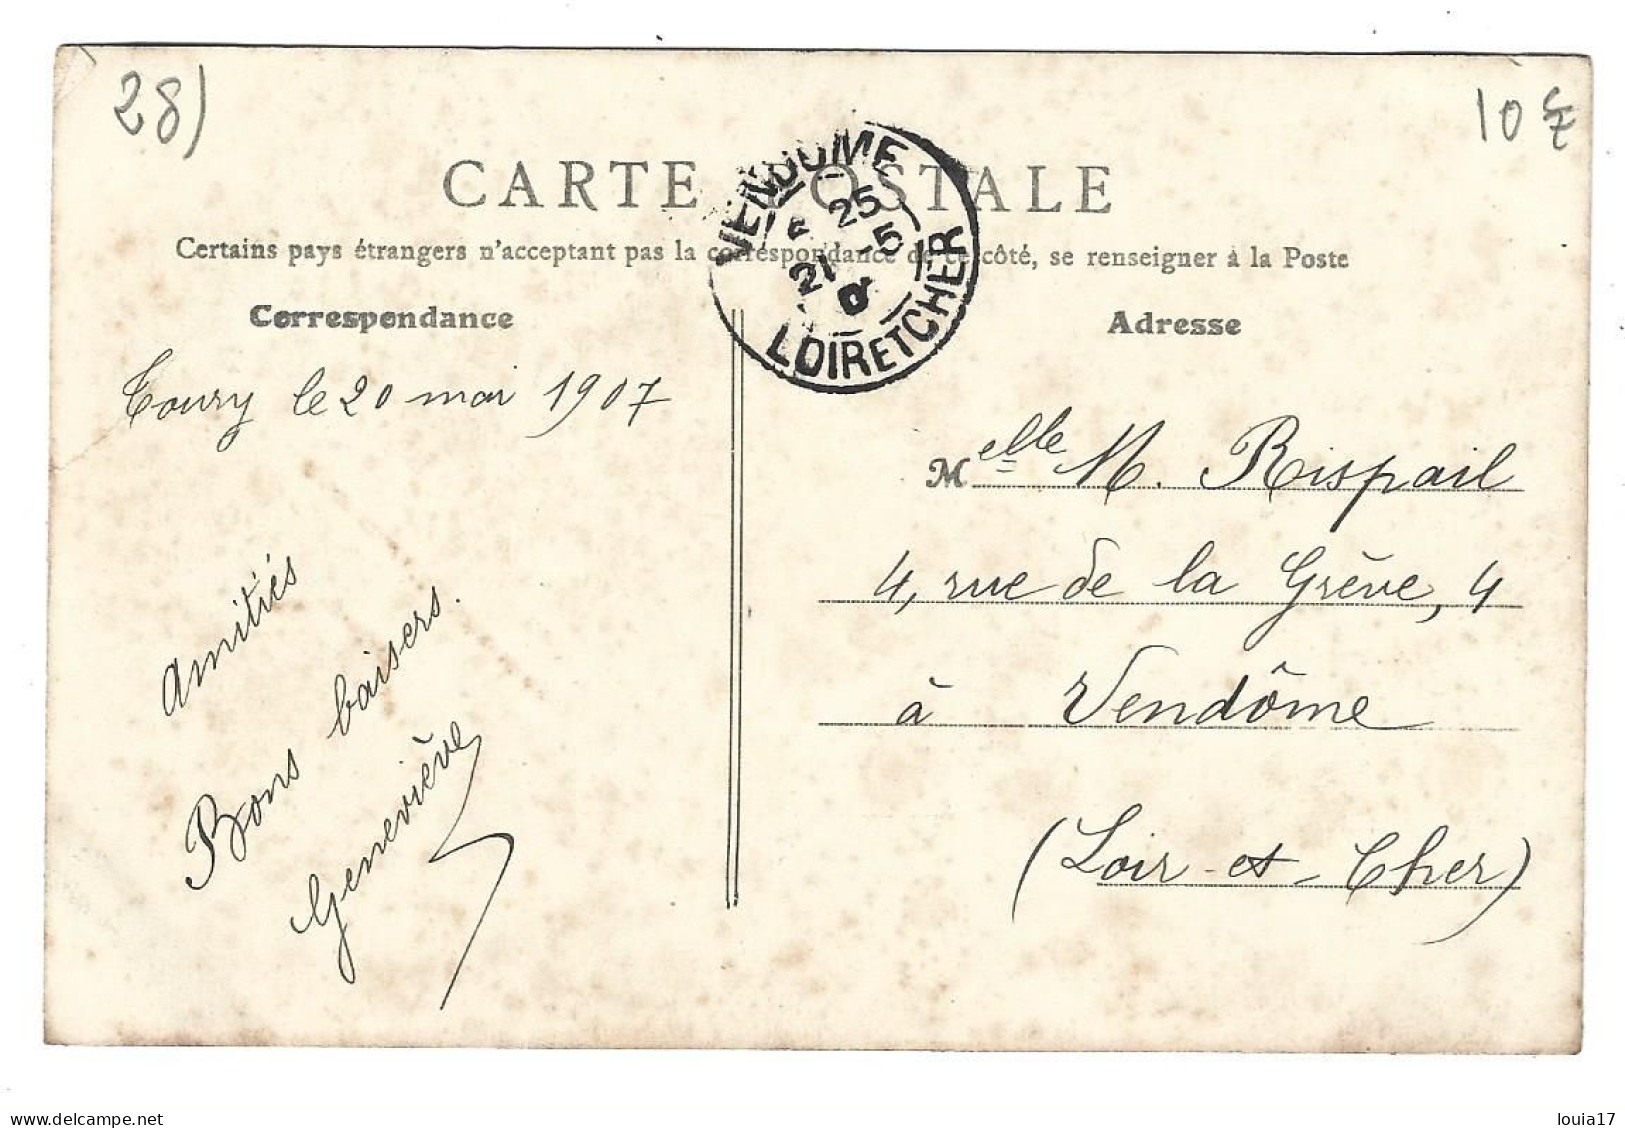 28)
10 €
CARTE POSTALE
Certains pays étrangers n'acceptant pas la correspondance de ce côté, se renseigner à la Poste
VENDOME
25
21 -5
LOIR ET CHER
Correspondance
Adresse
Toury le 20 mai 1907
Amitiés
Bons baisers.
Geneviève
Melle M. Rispail
4, rue de la Grève, 4
à Vendôme
(Loir-et-Cher)
delcampe.net
louia17